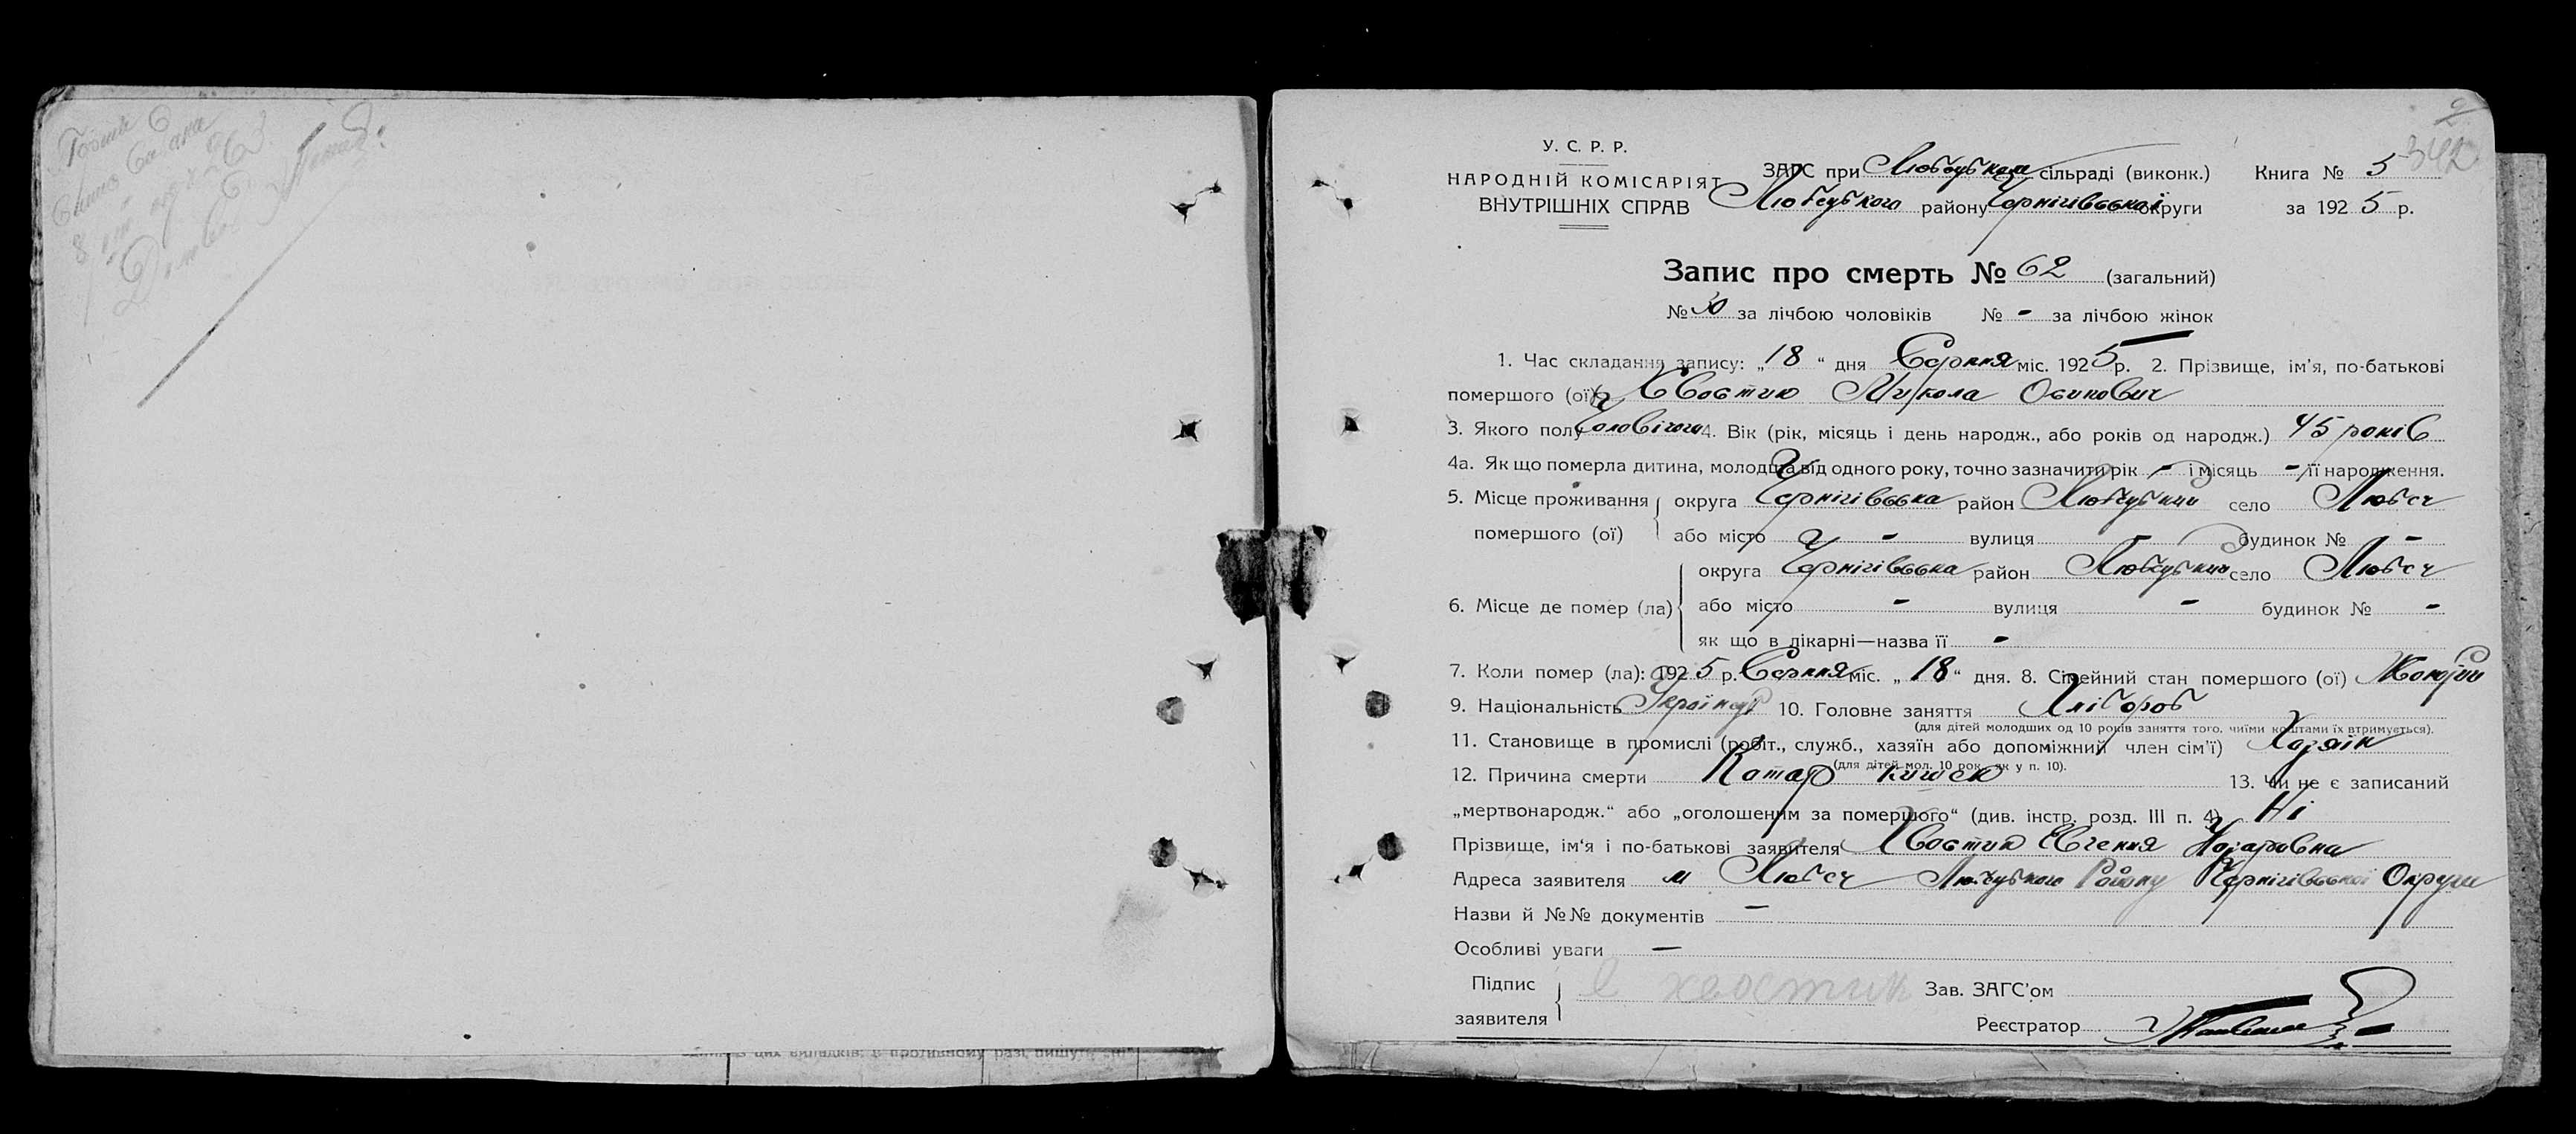 У. С. Р. Р.
НАРОДНІЙ КОМІСАРІЯТ
ВНУТРІШНІХ СПРАВ
ЗАГС при Любецьком сільраді (виконк.) Книга № 5
Любецького району Чернігівської округи за 1925 р.
342
Запис про смерть № 62 (загальний)
№ 30 за лічбою чоловіків № - за лічбою жінок
1. Час складання запису: „18“ дня Серпня міс. 1925 р. 2. Прізвище, ім'я, по-батькові
помершого (ої) Хвостию Микола Осипович
3. Якого полу Чоловічого 4. Вік (рік, місяць і день народж., або років од народж.) 45 років
4а. Як що померла дитина, молодша від одного року, точно зазначити рік - і місяць - її народження.
5. Місце проживання помершого (ої) округа Чернігівська район Любецький село Любеч
або місто - вулиця - будинок № -
6. Місце де помер (ла) округа Чернігівська район Любецький село Любеч
або місто - вулиця - будинок № -
як що в лікарні—назва її -
7. Коли помер (ла): 1925 р. Серпня міс. „18“ дня. 8. Сімейний стан помершого (ої)
9. Національність Українець 10. Головне заняття Хлібороб
(для дітей молодших од 10 років заняття того, чиїми коштами їх втримується).
11. Становище в промислі (робіт., служб., хазяїн або допоміжний член сім'ї) Хазяїн
(для дітей мол. 10 рок. як у п. 10).
12. Причина смерти Катар кишек 13. Чи не є записаний
„мертвонародж.“ або „оголошеним за помершого“ (див. інстр. розд. III п. 4) Ні
Прізвище, ім'я і по-батькові заявителя Хвостию Евгения Назаровна
Адреса заявителя м Любеч Любецького Району Чернігівської Округи
Назви й №№ документів —
Особливі уваги —
Підпис заявителя е хвостик Зав. ЗАГС'ом
Реєстратор